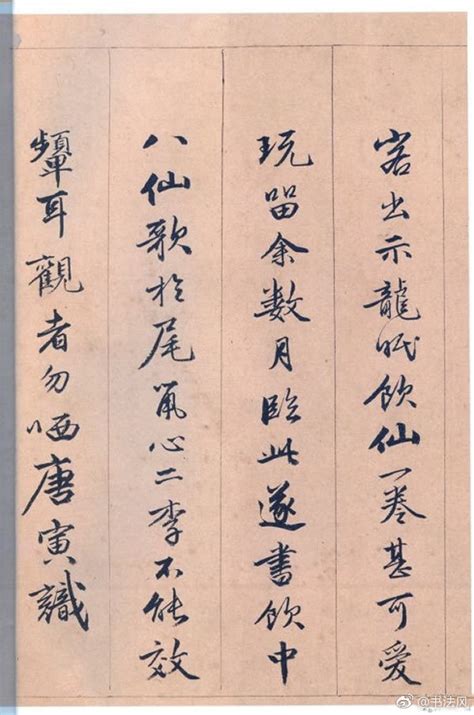 客出示龍眠飲仙一卷甚可爱
玩留余数月臨此遂書飲中
八仙歌於尾心二李不能效
顰耳觀者勿哂唐寅識
@书法风